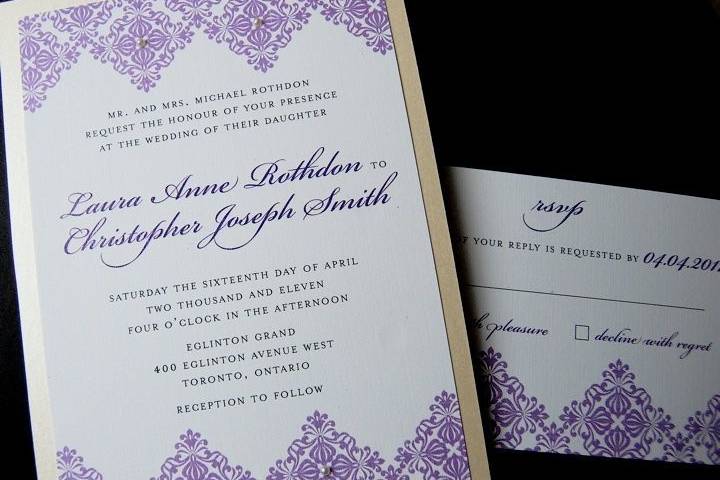 MR. AND MRS. MICHAEL ROTHDON
REQUEST THE HONOUR OF YOUR PRESENCE
AT THE WEDDING OF THEIR DAUGHTER
Laura Anne Rothdon TO
Christopher Joseph Smith
SATURDAY THE SIXTEENTH DAY OF APRIL
TWO THOUSAND AND ELEVEN
FOUR O'CLOCK IN THE AFTERNOON
EGLINTON GRAND
400 EGLINTON AVENUE WEST
TORONTO, ONTARIO
RECEPTION TO FOLLOW
rsvp
OF YOUR REPLY IS REQUESTED BY
pleasure decline with regret